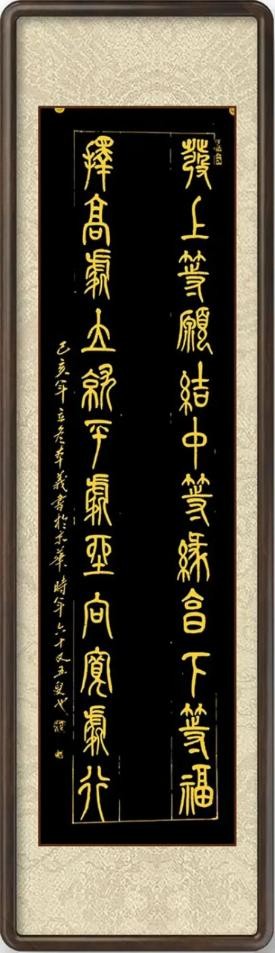 發上等願結中等緣享下等福
擇高處立就平處坐向寬處行
己亥年立冬義書於京華時年六十又五